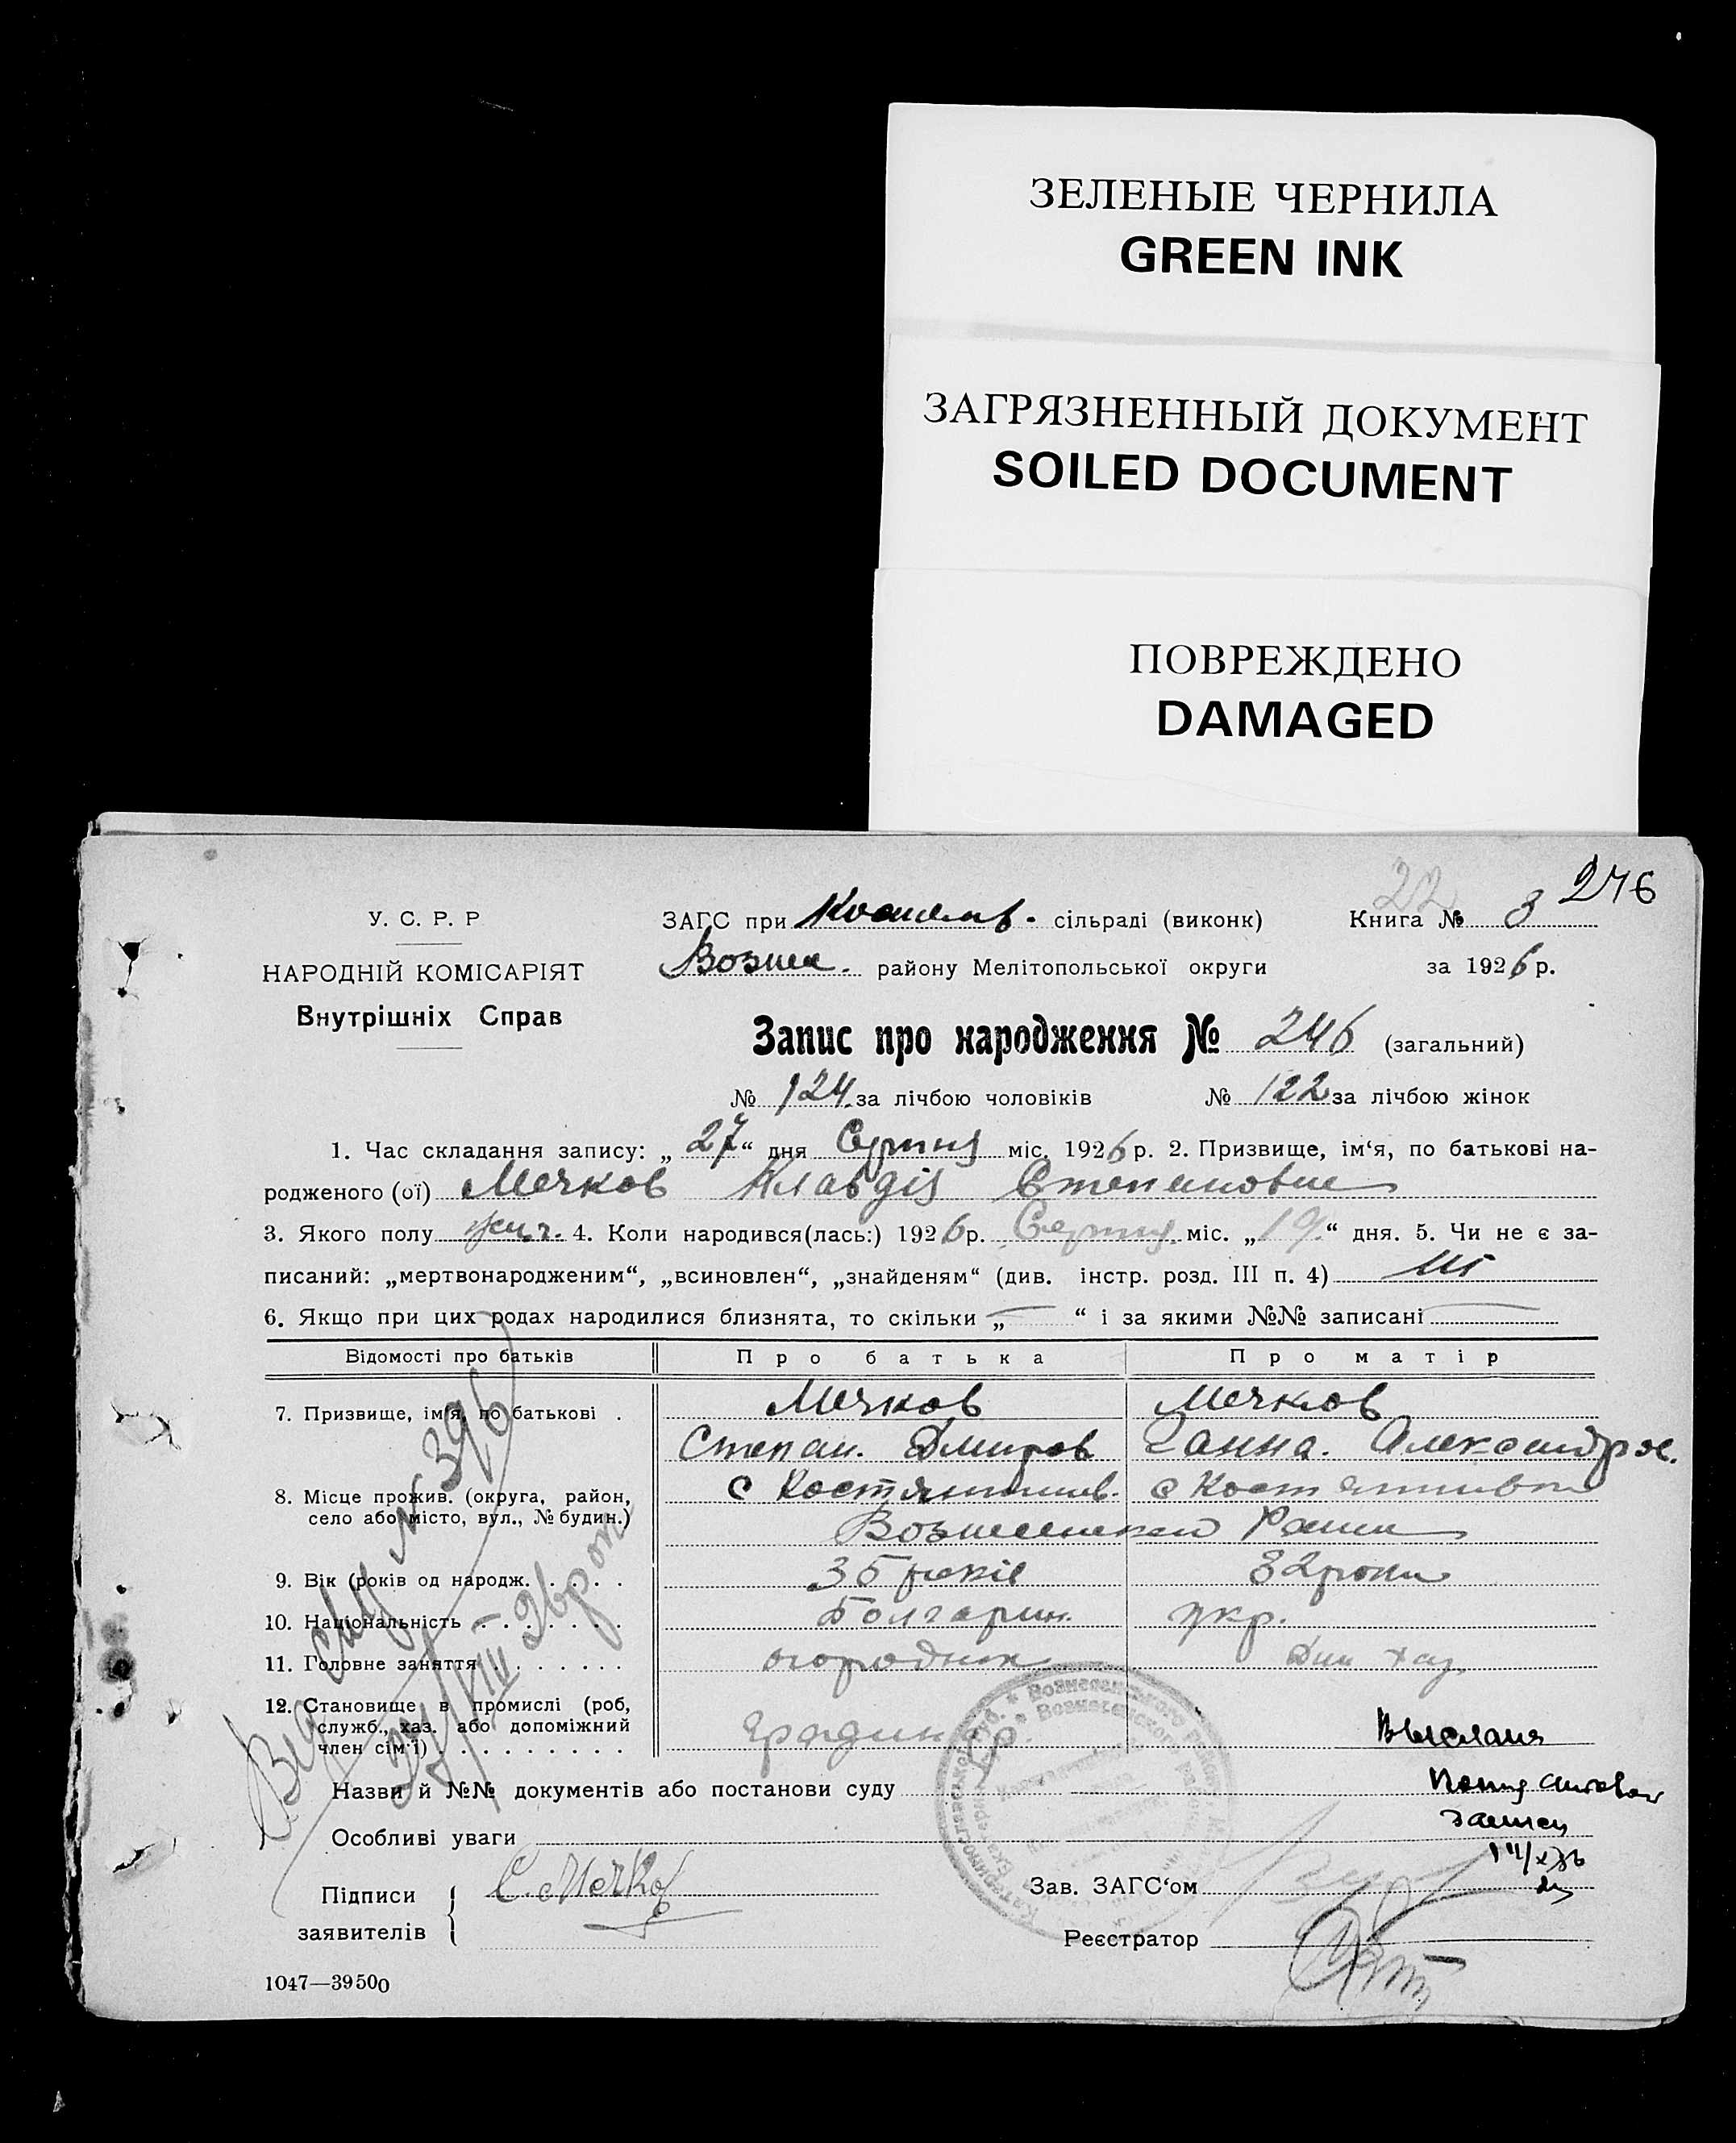 ЗЕЛЕНЫЕ ЧЕРНИЛА
GREEN INK
ЗАГРЯЗНЕННЫЙ ДОКУМЕНТ
SOILED DOCUMENT
ПОВРЕЖДЕНО
DAMAGED
22 246
У. С. Р. Р
ЗАГС при сільраді (виконк) Книга № 3
Возне. району Мелітопольської округи за 1926 р.
НАРОДНІЙ КОМІСАРІЯТ
Внутрішніх Справ
Запис про народження № 246 (загальний)
№ 124 за лічбою чоловіків № 122 за лічбою жінок
1. Час складання запису: „27“ дня Серпня міс. 1926 р. 2. Призвище, ім‘я, по батькові на-
родженого (ої) Мечков Клавдія Степановна
3. Якого полу 4. Коли народився(лась:) 1926 р. Серпня міс. „19“ дня. 5. Чи не є за-
писаний: „мертвонародженим“, „всиновлен“, „знайденям“ (див. інстр. розд. III п. 4) Ні
6. Якщо при цих родах народилися близнята, то скільки „ — “ і за якими №№ записані —
Відомості про батьків Про батька Про матір
7. Призвище, ім‘я, по батькові . Мечков Мечков
Степан. Дмитров Ганна. Александров.
8. Місце прожив. (округа, район, село або місто, вул., № будин.) с Костянтинів. с Костянтинівки
Вознесенкой
9. Вік (років од народж. . . . . 35 років 32 роки
10. Національність . . . . . . . Болгарин. укр.
11. Головне заняття . . . . . . . огородник Дом хаз.
12. Становище в промислі (роб, служб., хаз. або допоміжний член сім‘ї) . . . . . . . . .
Назви й №№ документів або постанови суду
Особливі уваги
Выслана
Підписи заявителів С. Мечков
Зав. ЗАГС‘ом
Реєстратор
1047—39500
№ 396